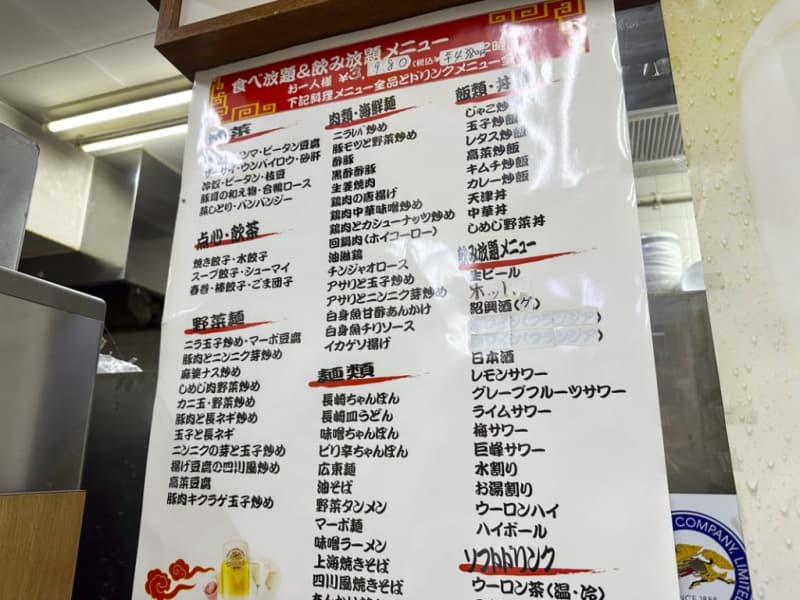 食べ放題&飲み放題メニュー
お一人様 ¥3,980 (税込¥4,380円) 2時間
下記料理メニュー全品とドリンクメニュー全
菜
ンマ・ピータン豆腐
ザーサイ・ウンパイロウ・砂肝
冷奴・ピータン・枝豆
豚耳の和え物・合鴨ロース
蒸しどり・バンバンジー
点心・飲茶
焼き餃子・水餃子
スープ餃子・シューマイ
春巻・棒餃子・ごま団子
野菜麺
ニラ玉子炒め・マーボ豆腐
豚肉とニンニク芽炒め
麻婆ナス炒め
しめじ肉野菜炒め
カニ玉・野菜炒め
豚肉と長ネギ炒め
玉子と長ネギ
ニンニクの芽と玉子炒め
揚げ豆腐の四川風炒め
高菜豆腐
豚肉キクラゲ玉子炒め
肉類・海鮮麺
ニラレバ炒め
豚モツと野菜炒め
酢豚
黒酢酢豚
生姜焼肉
鶏肉の唐揚げ
鶏肉中華味噌炒め
鶏肉とカシューナッツ炒め
回鍋肉(ホイコーロー)
油淋鶏
チンジャオロース
アサリと玉子炒め
アサリとニンニク芽炒め
白身魚甘酢あんかけ
白身魚チリソース
イカゲソ揚げ
麺類
長崎ちゃんぽん
長崎皿うどん
味噌ちゃんぽん
ピリ辛ちゃんぽん
広東麺
油そば
野菜タンメン
マーボ麺
味噌ラーメン
上海焼きそば
四川風焼きそば
飯類・丼
じゃこ炒
玉子炒飯
レタス炒飯
高菜炒飯
キムチ炒飯
カレー炒飯
天津丼
中華丼
しめじ野菜丼
飲み放題メニュー
生ビール
ホッ
紹興酒(グ)
日本酒
レモンサワー
グレープフルーツサワー
ライムサワー
梅サワー
巨峰サワー
水割り
お湯割り
ウーロンハイ
ハイボール
ソフトドリンク
ウーロン茶(温・冷)
COMPANY, LIMITED
SINCE 1888